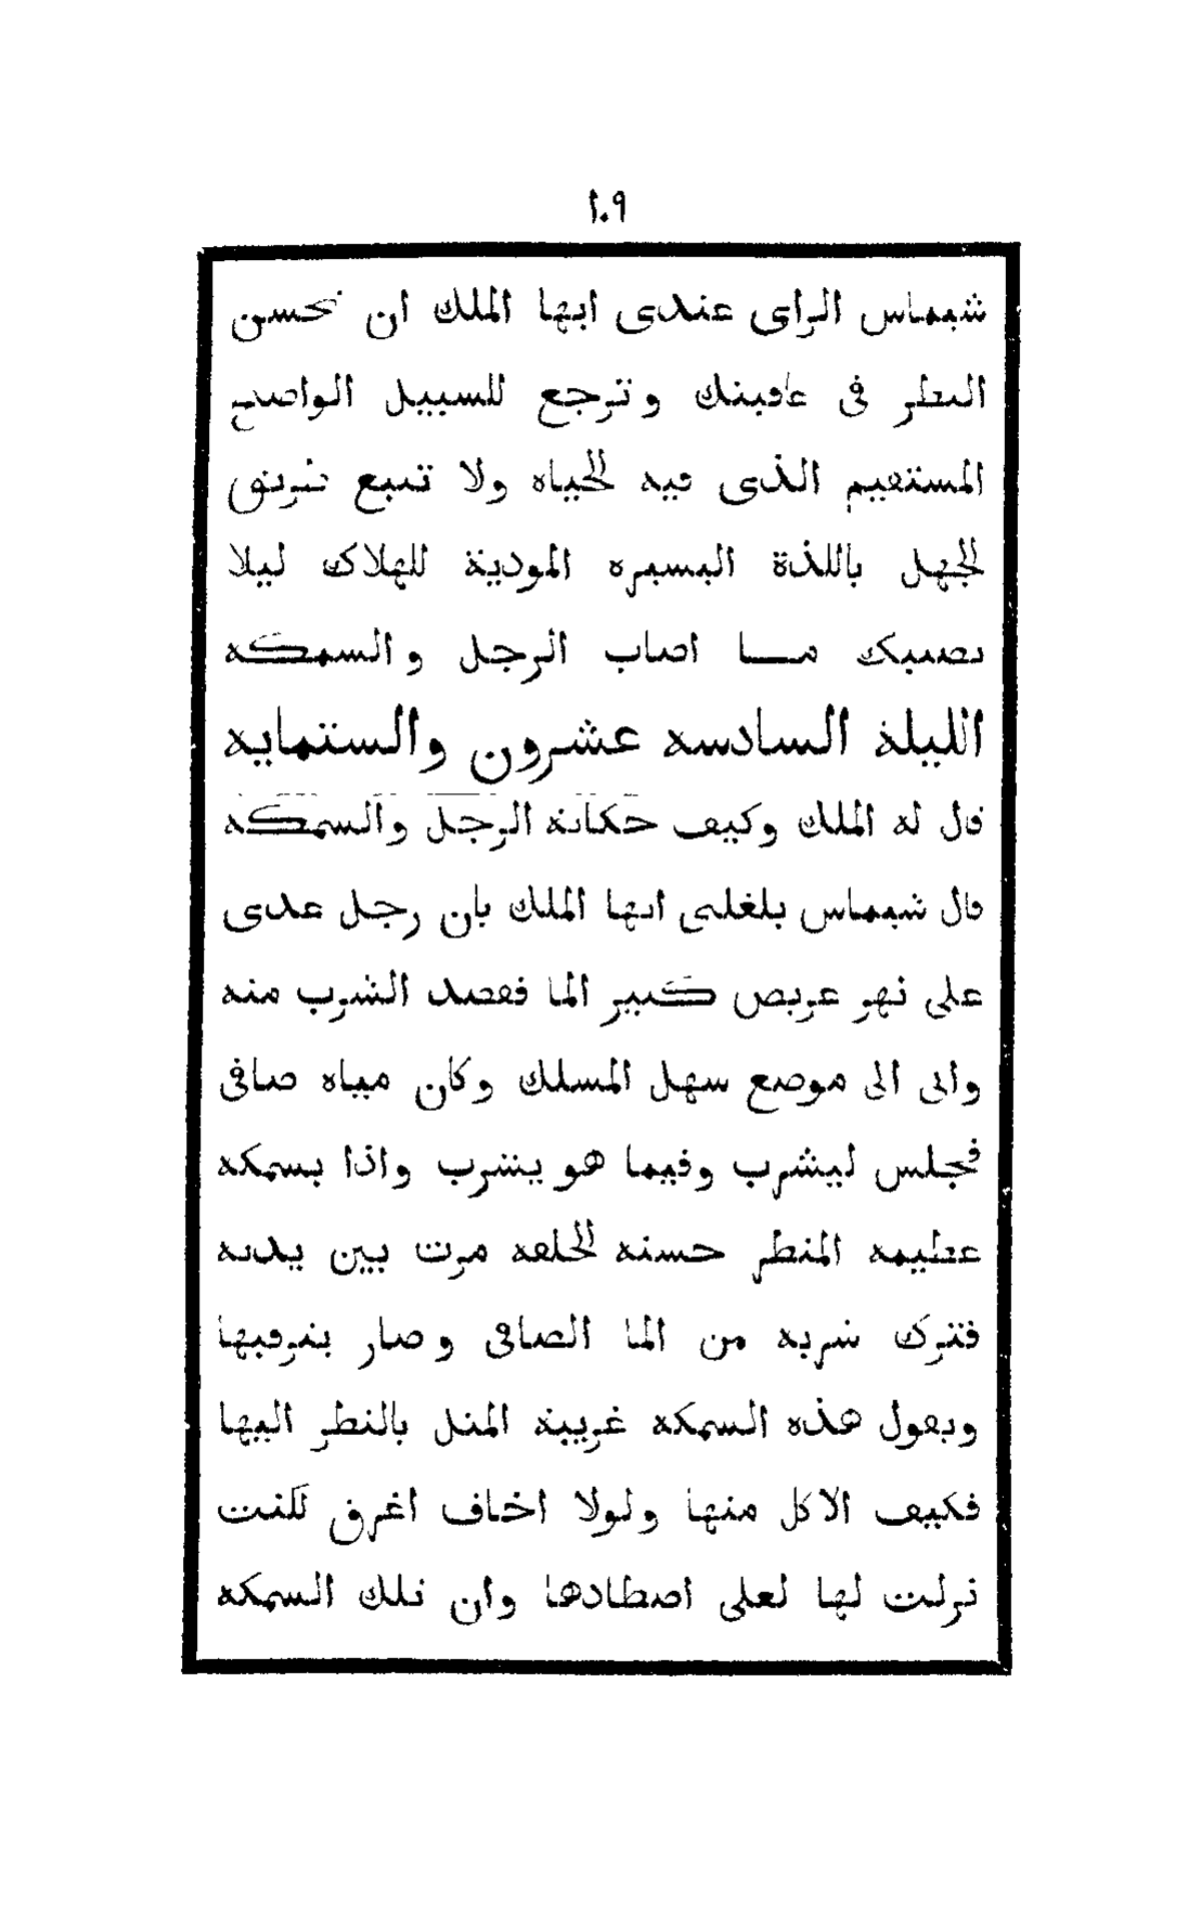 ١٠٩
شيماس الراى عندى ايها الملك ان تحسن
النظر فى عاقبتك وترجع للسبيل الواضح
المستقيم الذى فيه الحياه ولا تتبع طريق
الجهل باللذة اليسيره المودية للهلاك ليلا
يصيبك ما اصاب الرجل والسمكه
الليلة السادسه عشرون والستمايه
قال له الملك وكيف حكاية الرجل والسمكه
قال شيماس بلغلى ايها الملك بان رجل عدى
على نهر عريض كبير الما فقصد الشرب منه
واتى الى موضع سهل المسلك وكان مياه صافى
فجلس ليشرب وفيما هو يشرب واذا بسمكه
عظيمه المنظر حسنه الخلقه مرت بين يديه
فترك شربه من الما الصافى وصار يترقبها
ويقول هذه السمكه غريبة المثل بالنظر اليها
فكيف الاكل منها ولولا اخاف اغرق لكنت
نزلت لها لعلى اصطادها وان تلك السمكه